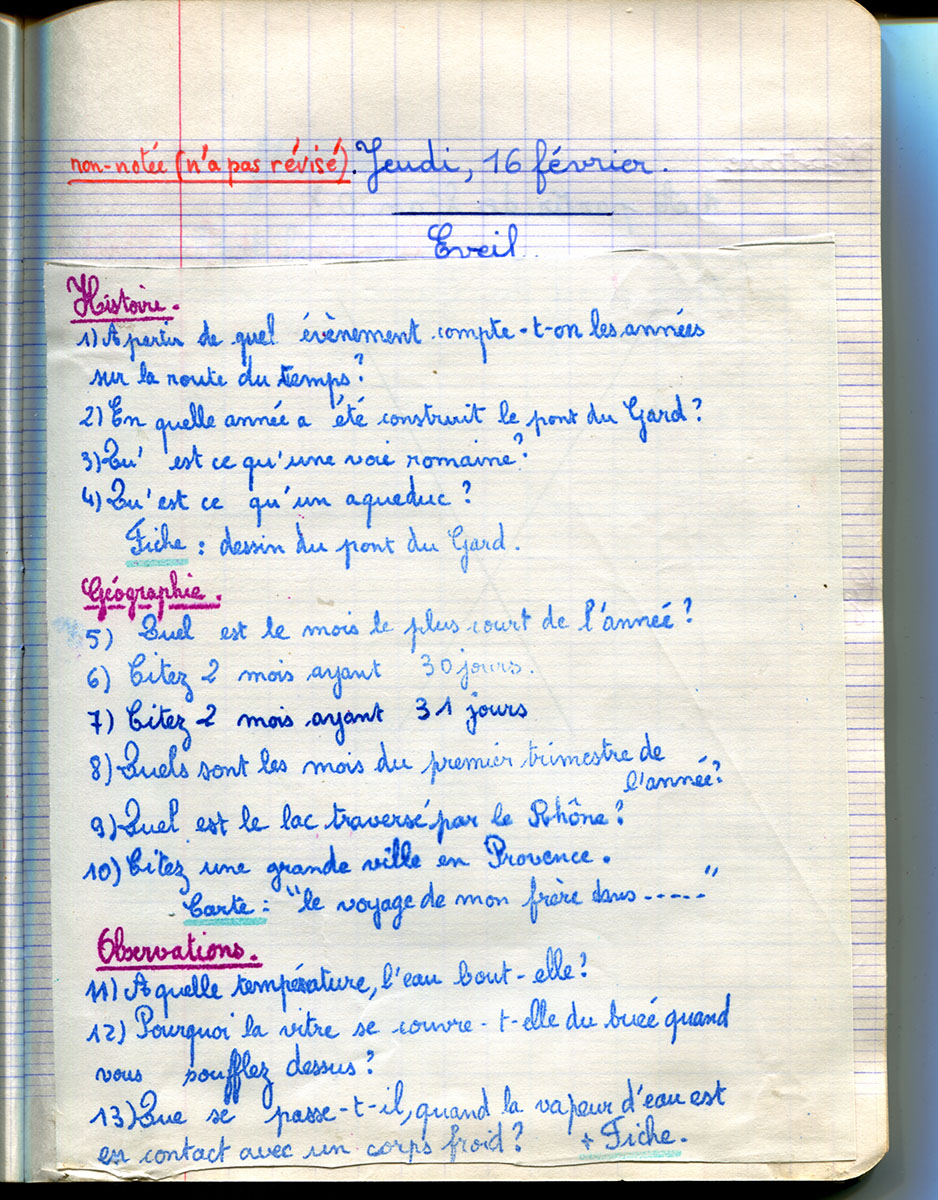 non-notée (n'a pas révisé). Jeudi, 16 février.
Eveil
Histoire.
1) A partir de quel évènement compte-t-on les années
sur la route du temps?
2) En quelle année a été construit le pont du Gard?
3) Qu' est ce qu'une voie romaine?
4) Qu'est ce qu'un aqueduc?
Fiche : dessin du pont du Gard.
Géographie.
5) Quel est le mois le plus court de l'année?
6) Citez 2 mois ayant 30 jours.
7) Citez 2 mois ayant 31 jours
8) Quels sont les mois du premier trimestre de
l'année?
9) Quel est le lac traversé par le Rhône?
10) Citez une grande ville en Provence.
Carte : "le voyage de mon frère dans -----"
Observations.
11) A quelle température, l'eau bout-elle?
12) Pourquoi la vitre se couvre-t-elle du buée quand
vous soufflez dessus?
13) Que se passe-t-il, quand la vapeur d'eau est
en contact avec un corps froid? + Fiche.